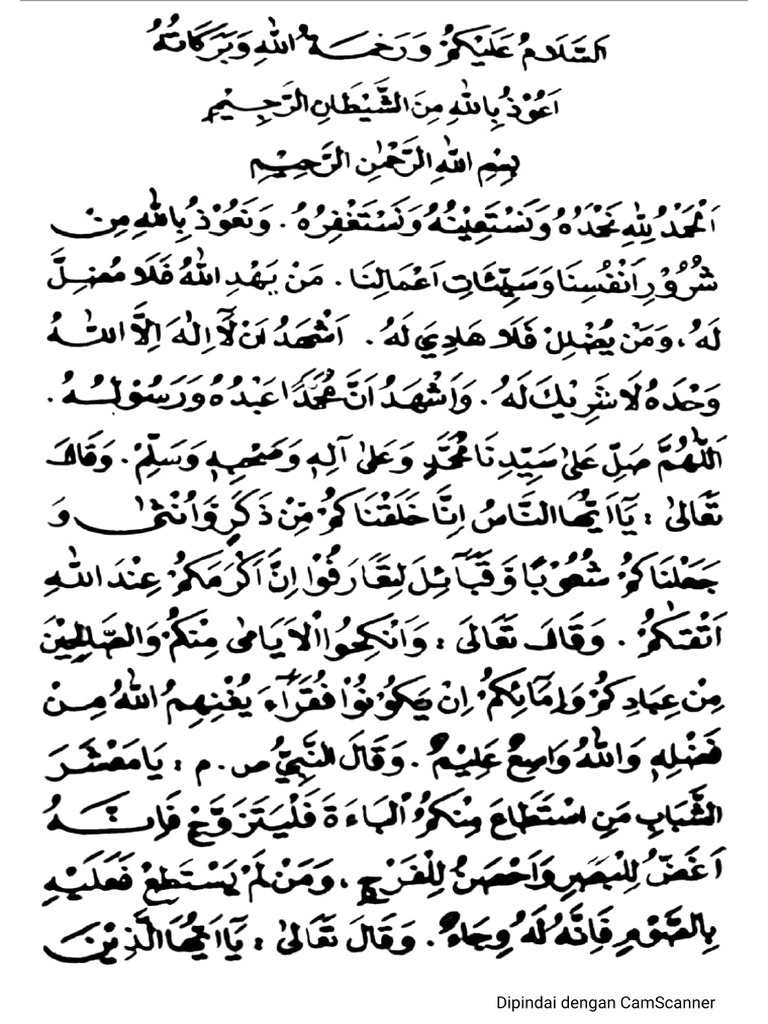 اَلسَّلَامُ عَلَيْكُمْ وَرَحْمَةُ اللهِ وَبَرَكَاتُهُ
اَعُوْذُ بِاللهِ مِنَ الشَّيْطَانِ الرَّجِيْمِ
بِسْمِ اللهِ الرَّحْمٰنِ الرَّحِيْمِ
اَلْحَمْدُ لِلّٰهِ نَحْمَدُهُ وَنَسْتَعِيْنُهُ وَنَسْتَغْفِرُهُ. وَنَعُوْذُ بِاللهِ مِنْ
شُرُوْرِ اَنْفُسِنَا وَسَيِّئَاتِ اَعْمَالِنَا. مَنْ يَهْدِ اللهُ فَلَا مُضِلَّ
لَهُ، وَمَنْ يُضْلِلْ فَلَا هَادِيَ لَهُ. اَشْهَدُ اَنْ لَّا اِلٰهَ اِلَّا اللهُ
وَحْدَهُ لَا شَرِيْكَ لَهُ. وَاَشْهَدُ اَنَّ مُحَمَّدًا عَبْدُهُ وَرَسُوْلُهُ.
اَللّٰهُمَّ صَلِّ عَلٰى سَيِّدِنَا مُحَمَّدٍ وَعَلٰى آلِهِ وَصَحْبِهِ وَسَلِّمْ. وَقَالَ
تَعَالٰى : يَآ اَيُّهَا النَّاسُ اِنَّا خَلَقْنَاكُمْ مِّنْ ذَكَرٍ وَّاُنْثٰى وَ
جَعَلْنَاكُمْ شُعُوْبًا وَّقَبَآئِلَ لِتَعَارَفُوْا اِنَّ اَكْرَمَكُمْ عِنْدَ اللهِ
اَتْقٰىكُمْ. وَقَالَ تَعَالَى : وَاَنْكِحُوا الْاَيَامٰى مِنْكُمْ وَالصَّالِحِيْنَ
مِنْ عِبَادِكُمْ وَاِمَآئِكُمْ اِنْ يَكُوْنُوْا فُقَرَآءَ يُغْنِهِمُ اللهُ مِنْ
فَضْلِهِ وَاللهُ وَاسِعٌ عَلِيْمٌ. وَقَالَ النَّبِيُّ ص.م : يَا مَعْشَرَ
الشَّبَابِ مَنِ اسْتَطَاعَ مِنْكُمُ الْبَاءَةَ فَلْيَتَزَوَّجْ فَاِنَّهُ
اَغَضُّ لِلْبَصَرِ وَاَحْصَنُ لِلْفَرْجِ، وَمَنْ لَمْ يَسْتَطِعْ فَعَلَيْهِ
بِالصَّوْمِ فَاِنَّهُ لَهُ وِجَاءٌ. وَقَالَ تَعَالٰى : يَآ اَيُّهَا الَّذِيْنَ
Dipindai dengan CamScanner